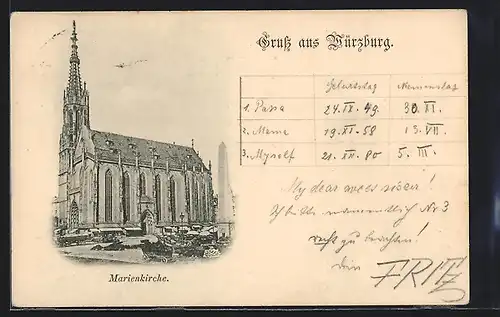 Gruß aus Würzburg.
Geburtstag Namenstag
1. Papa 24. IX. 49. 30. XI.
2. Mama 19. XI. 58 13. VII.
3. Myself 21. XII. 80 5. III.
My dear !
Ich bitte namentlich Nr 3
recht zu beachten!
dein FRITZ
Marienkirche.